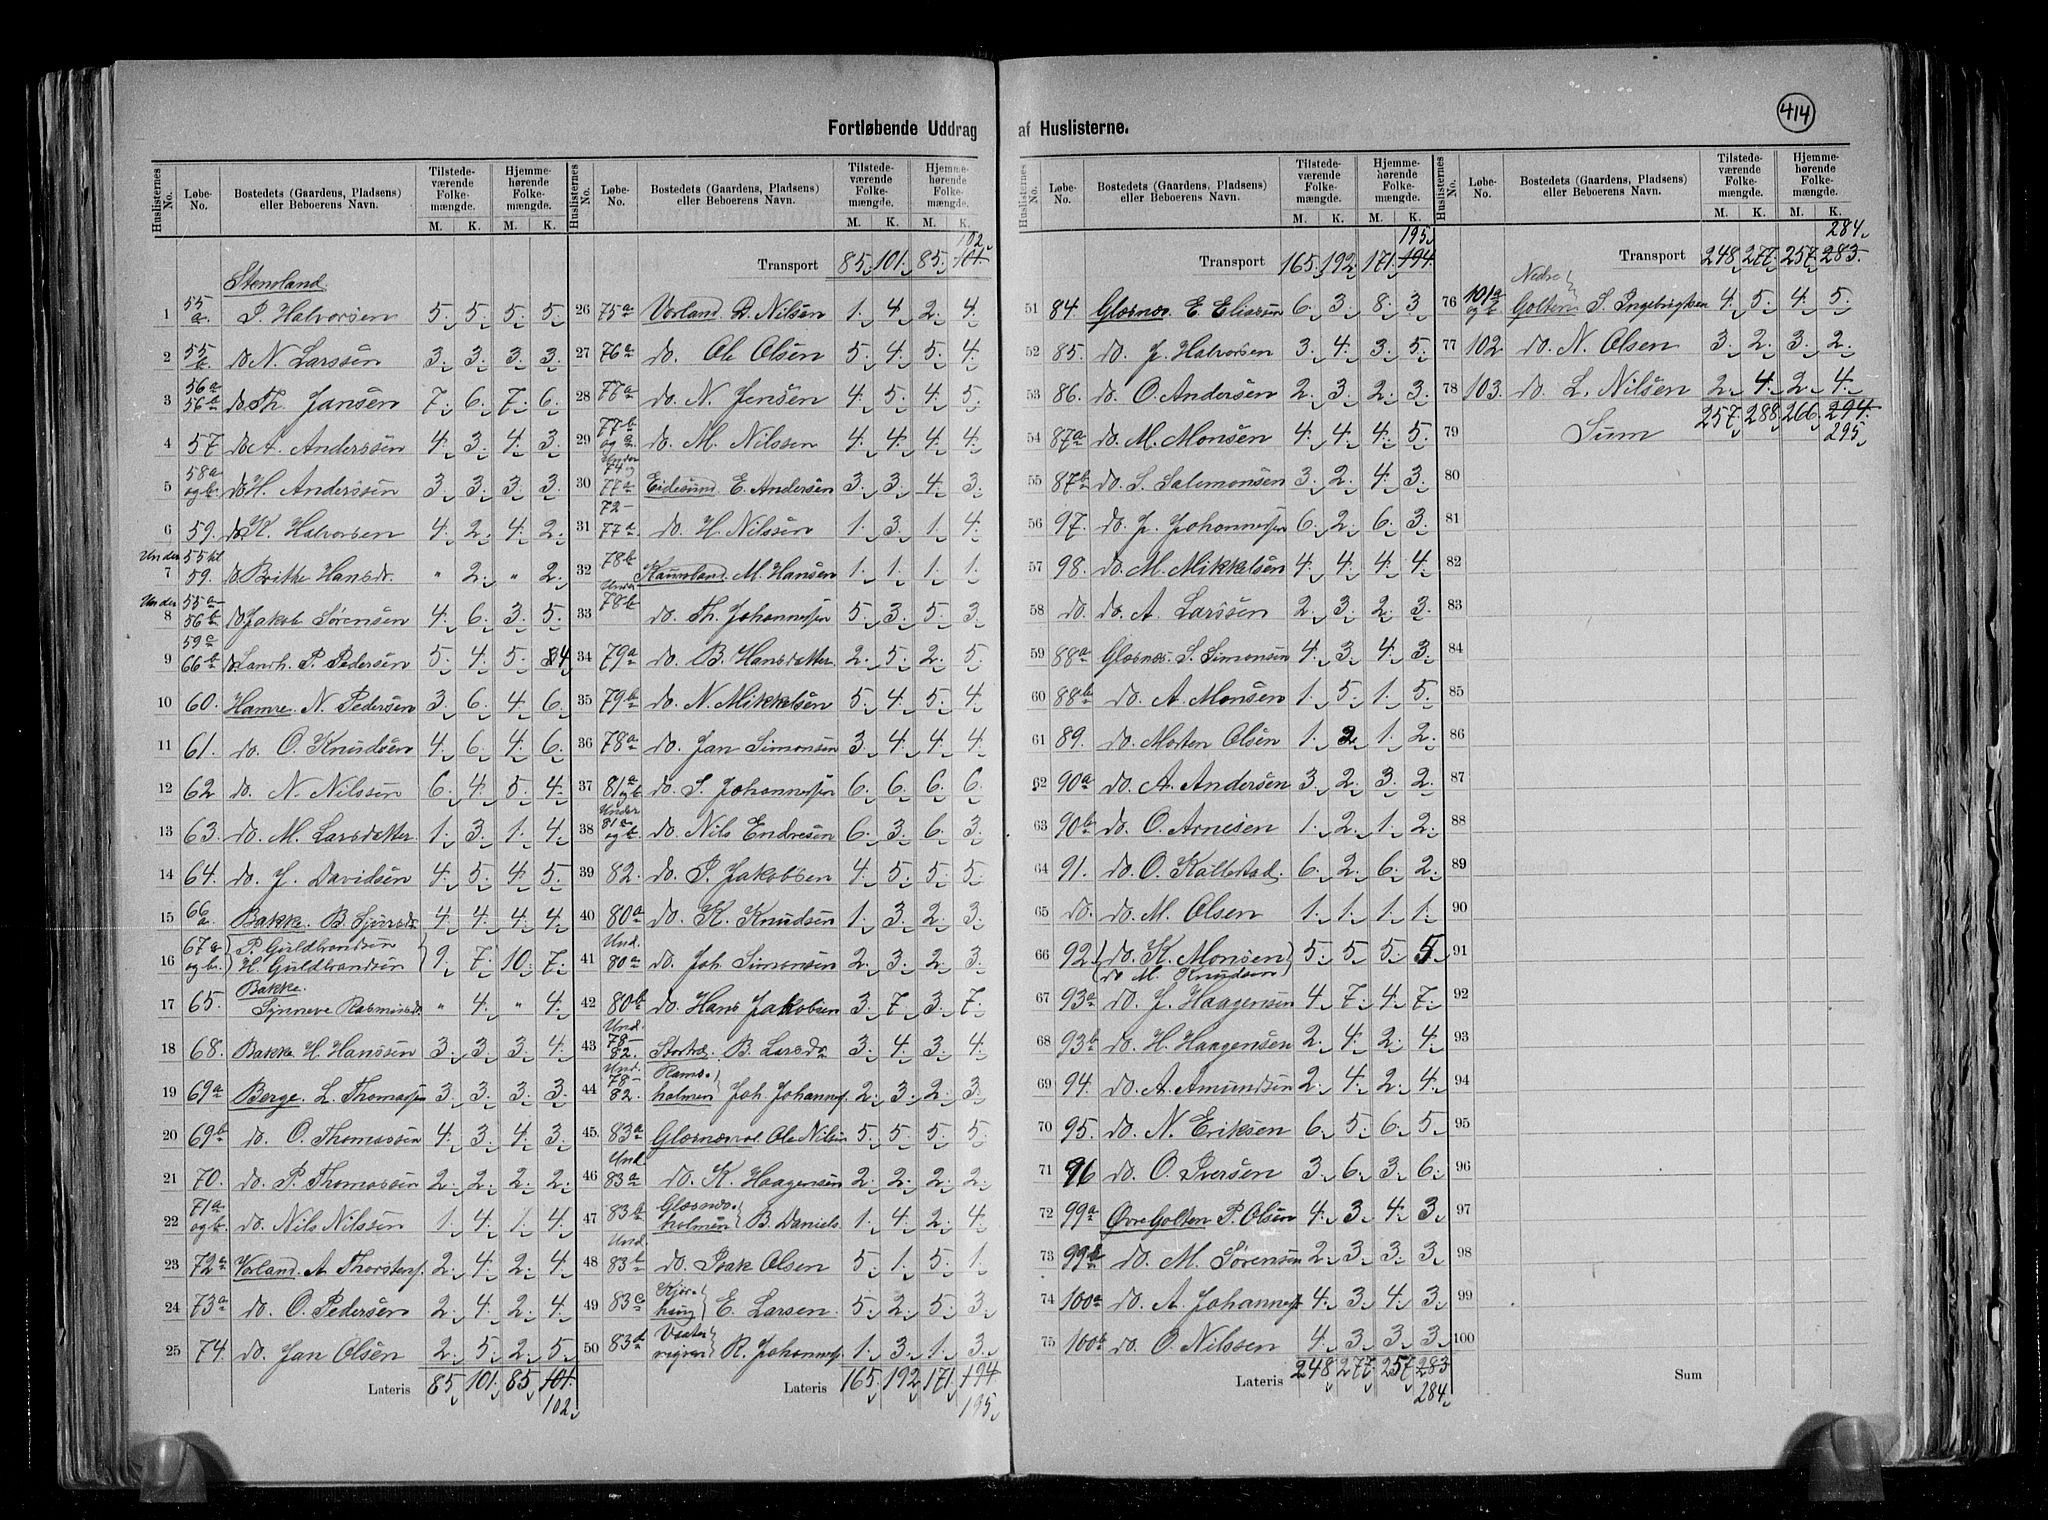 414
Fortløbende Uddrag af Huslisterne.
Huslisternes No. Løbe-No. Bostedets (Gaardens, Pladsens) eller Beboerens Navn. Tilstedeværende Folkemængde. M. K. Hjemmehørende Folkemængde. M. K.
Stensland
1 55a P. Halvorsen 5. 5. 5. 5.
2 55b do N. Larssen 3. 3. 3. 3.
3 56a 56b do Th. Jansen 7. 6. 7. 6.
4 57 do A. Anderssen 4. 3. 4. 3.
5 58a og b. do H. Anderssen 3. 3. 3. 3.
6 59. do K. Halvorsen 4. 2. 4. 2.
7 Under 55 til 59. do Brithe Hansdr. " 2. " 2.
8 Under 55a– 56b do Jakob Sørensen 4. 6. 3. 5.
9 59a 66b do Landh. P. Pedersen 5. 4. 5. 4
10 60. Hamre. N. Pedersen 3. 6. 4. 6.
11 61. do. O. Knudsen 4. 6. 4. 6.
12 62 do. N. Nilssen 6. 4. 5. 4.
13 63. do. M. Larsdatter 1. 3. 1. 4.
14 64. do. J. Davidsen 4. 5. 4. 5.
15 66a Bakke. B. Sjursdr 4. 4. 4. 4.
16 67a og b. P. Guldbrandsen H. Guldbrandsen 9. 7. 10. 7.
17 65. Bakke. Synneve Rasmusdr " 4. " 4.
18 68. Bakke H. Hanssen 3. 3. 3. 4.
19 69a Berge. L. Thomassen 3. 3. 3. 3.
20 69b do. O. Thomassen 4. 3. 4. 3.
21 70. do. P. Thomassen 2. 2. 2. 2.
22 71a og b. do. Nils Nilssen 1. 4. 1. 4.
23 72a Vorland. A. Thorstens. 2. 4. 2. 4.
24 73a do. O. Pedersen 2. 4. 2. 4.
25 74. do. Jan Olsen 2. 5. 2. 5.
Lateris 85. 101. 85. 101. 102.
Huslisternes No. Løbe-No. Bostedets (Gaardens, Pladsens) eller Beboerens Navn. Tilstedeværende Folkemængde. M. K. Hjemmehørende Folkemængde. M. K.
102.
Transport 85. 101. 85. 101.
26 75a Vorland. B. Nilsen 1. 4. 2. 4.
27 76a do. Ole Olsen 5. 4. 5. 4.
28 77a do. N. Jensen 4. 5. 4. 5.
29 77b og a. do. M. Nilssen 4. 4. 4. 4.
30 Under 74 og 77a Eidesund. E. Andersen 3. 3. 4. 3.
31 72– 77a do. H. Nilssen 1. 3. 1. 4.
32 78b Kausland. M. Hansen 1. 1. 1. 1.
33 Under 78b do. Th. Johannessen 5. 3. 5. 3.
34 79a do. B. Hansdatter 2. 5. 2. 5.
35 79b do. N. Mikkelsen 5. 4. 5. 4.
36 78a do. Jan Simonsen 3. 4. 4. 4.
37 81a og b do. S. Johannessen 6. 6. 6. 6.
38 Under 81a og b. do. Nils Endresen 6. 3. 6. 3.
39 82. do. P. Jakobsen 4. 5. 5. 5.
40 80a do. K. Knudsen 1. 3. 2. 3.
41 Und. 80a do. Joh. Simonsen 2. 3. 2. 3.
42 80b do. Hans Jakobsen 3. 7. 3. 7.
43 Und. 78– 82. B. Larsdr 3. 4. 3. 4.
44 Und. 78– 82. Rams-holmen Joh. Johannes. 2. 3. 2. 3.
45. 83a Glæsnæs Ole Nilsen 5. 5. 5. 5.
46 Und. 83a do. K. Haagensen 2. 2. 2. 2.
47 83b Glæsnæs-holmen B. Daniels. 1. 4. 2. 4.
48 Und. 83b do. Isak Olsen 5. 1. 5. 1.
49 83c E. Larsen. 5. 2. 5. 3.
50 83d R. Johannes. 1. 3. 1. 3.
Lateris 165. 192 171. 194 195.
Huslisternes No. Løbe-No. Bostedets (Gaardens, Pladsens) eller Beboerens Navn. Tilstedeværende Folkemængde. M. K. Hjemmehørende Folkemængde. M. K.
195.
Transport 165. 192. 171. 194.
51 84. Glæsnæs. E. Eliassen 6. 3. 8. 3
52 85. do. J. Halvorsen 3. 4. 3. 5.
53 86. do. O. Andersen 2. 3. 2. 3.
54 87a do. M. Monsen 4. 4. 4. 5.
55 87b do. S. Salemonsen 3. 2. 4. 3.
56 97. do. J. Johannessen 6. 2. 6. 3.
57 98. do. M. Mikkelsen 4. 4. 4. 4.
58 do. do. A. Larssen 2. 3. 2. 3.
59 88a Glæsnæs. S. Simonsen 4. 3. 4. 3.
60 88b do. A. Monsen 1. 5. 1. 5.
61 89. do. Morten Olsen 1. 2. 1. 2.
62 90a do. A. Andersen 3. 2. 3. 2.
63 90b do. O. Arnesen 1. 2. 1. 2.
64 91. do. O. Kallestad. 6. 2. 6. 2.
65 do. do. M. Olsen 1. 1. 1. 1.
66 92. do. K. Monsen do M. Knudsen 5. 5. 5. 5
67 93a do. J. Haagensen 4. 7. 4. 7.
68 93b do. H. Haagensen 2. 4. 2. 4.
69 94. do. A. Amundsen 2. 4. 2. 4.
70 95. do. N. Eriksen 6. 5. 6. 5.
71 96 do. O. Iversen 3. 6. 3. 6.
72 99a Øvre Golten P. Olsen 4. 3. 4. 3.
73 99b do. M. Sørensen 2. 3. 3. 3.
74 100a do. A. Johannes. 4. 3. 4. 3.
75 100b do. O. Nilssen 4. 3. 3. 3.
Lateris 248 277. 257 283 284.
Huslisternes No. Løbe-No. Bostedets (Gaardens, Pladsens) eller Beboerens Navn. Tilstedeværende Folkemængde. M. K. Hjemmehørende Folkemængde. M. K.
284.
Transport 248. 277. 257. 283.
76 101a og b Nedre Golten S. Ingebrigtsen 4. 5. 4. 5.
77 102 do. N. Olsen 3. 2. 3. 2.
78 103. do. L. Nilsen 2. 4. 2. 4.
79 Sum 257. 288. 266. 294. 295.
80
81
82
83
84
85
86
87
88
89
90
91
92
93
94
95
96
97
98
99
100
Sum